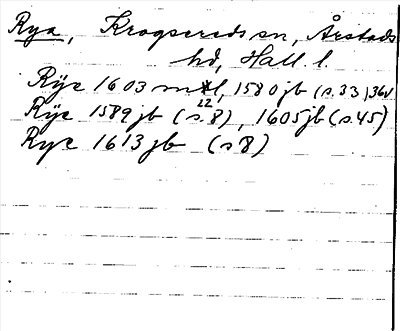 Rya, Krogsereds sn, Årstads
hd, Hall l.
Rÿe 1603 mtl, 1580 jb (s. 33, 36v
Rÿe 1589 jb (s. 8), 1605 jb (s. 45)
22
Rye 1613 jb (s 8)